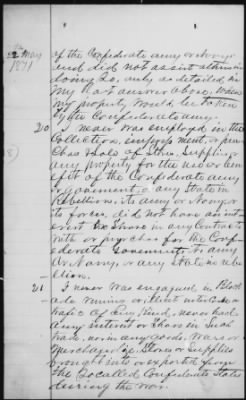 22 May
1871
of the Confederate army or navy
and did not assist others in
doing so, only as detailed in
my last answer above, when
my property would be taken
by the Confederate army.
20 I never was employed in the
Collection, impressment, or pur-
chase or sale of Stores, Supplies or
any property for the use or ben-
efit of the Confederate army
or government, or any State in
Rebellion, its army or Navy or
its forces, did not have an int-
erest or share in any Contract
with or purchase for the Conf-
ederate Government its Army
Or Navy, or any State in rebe-
llion.
21 I never was engaged in Block
ade running or illicit
traffic of any kind, never had
any interest or share in Such
trade, nor in any goods, Wares or
Merchandize, Stores or Supplies
brought into or exported from
the So called Confederate States
during the War.